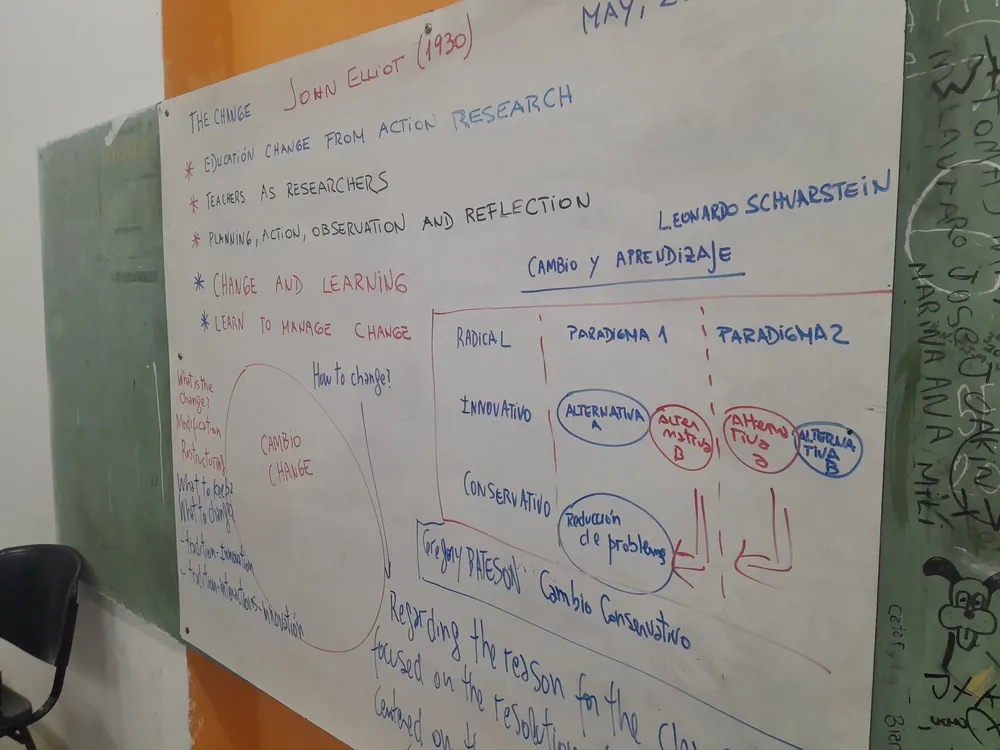 MAY, 2
THE CHANGE
JOHN ELLIOT (1930)
* EDUCATIÓN CHANGE FROM ACTION RESEARCH
* TEACHERS AS RESEARCHERS
* PLANNING, ACTION, OBSERVATION AND REFLECTION
* CHANGE AND LEARNING
* LEARN TO MANAGE CHANGE
LEONARDO SCHVARSTEIN
CAMBIO Y APRENDIZAJE
RADICAL
PARADIGMA 1
PARADIGMA 2
INNOVATIVO
ALTERNATIVA
A
Alter
nativa
B
Alterna
tiva
a
ALTERNA
TIVA
B
CONSERVATIVO
Reducción
de problema
Gregory BATESON Cambio Conservativo
How to change?
What is the
change?
Modification
Restructuring
What to keep?
What to change?
- tradition-innovation
- tradition-interactions-innovation
CAMBIO
CHANGE
Regarding the reason for the
focused on the resolution
Centered on
LAUTARO JOSE JOAKIN
MARINA ANA MILI